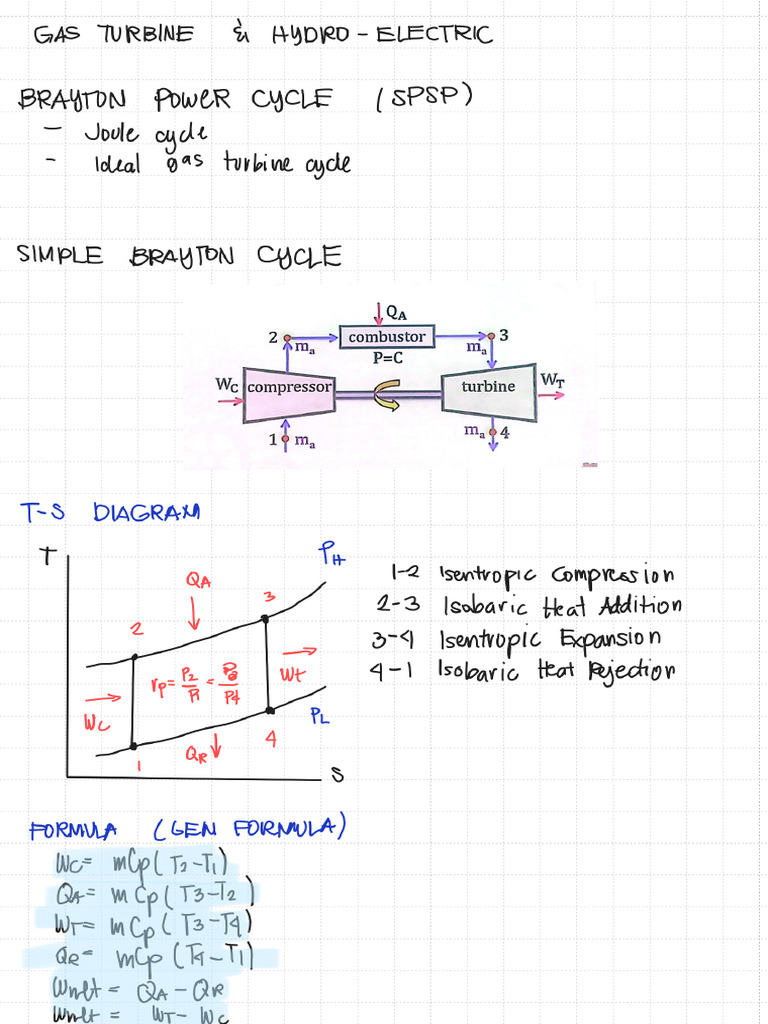 GAS TURBINE & HYDRO-ELECTRIC
BRAYTON POWER CYCLE (SPSP)
- Joule cycle
- Ideal gas turbine cycle
SIMPLE BRAYTON CYCLE
QA
2 combustor 3
ma P=C ma
WC compressor turbine WT
1 ma ma 4
T-S DIAGRAM
T PH
QA
3
2
rp = P2/P1 = P3/P4
Wt
WC
PL
1 QR 4
S
1-2 Isentropic Compression
2-3 Isobaric Heat Addition
3-4 Isentropic Expansion
4-1 Isobaric Heat Rejection
FORMULA (GEN FORMULA)
WC = mCp(T2-T1)
QA = mCp(T3-T2)
WT = mCp(T3-T4)
QR = mCp(T4-T1)
Wnet = QA - QR
Wnet = WT - WC